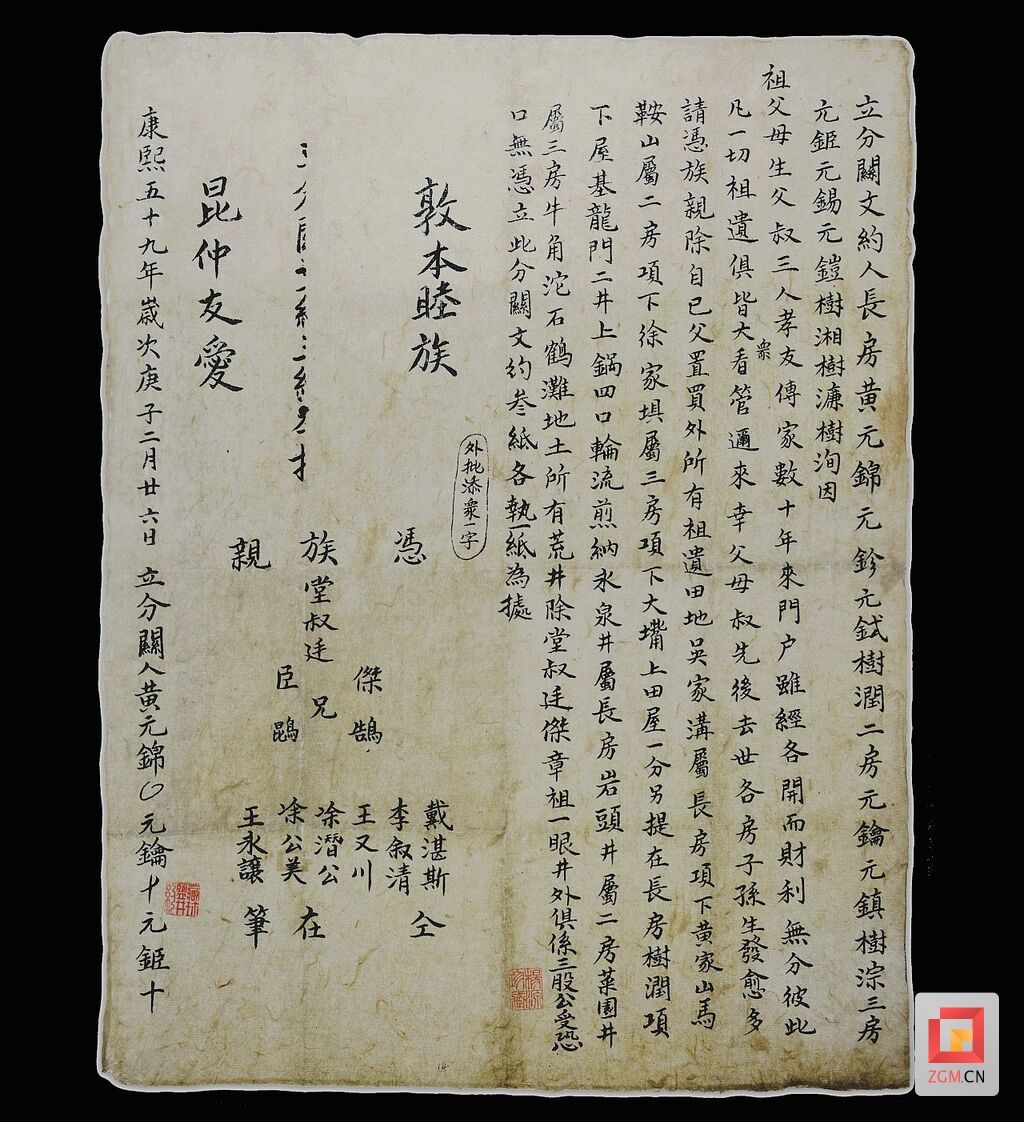 立分關文約人長房黃元錦元鉁元鉽樹潤二房元鑰元鎮樹淙三房
元鉅元錫元鎧樹湘樹濂樹洵因
祖父母生父叔三人孝友傳家數十年來門户雖經各開而財利無分彼此
凡一切祖遺俱皆大衆看管邇來幸父母叔先後去世各房子孫生發愈多
請憑族親除自己父置買外所有祖遺田地吳家溝屬長房項下黃家山馬
鞍山屬二房項下徐家埧屬三房項下大塆上田屋一分另提在長房樹潤項
下屋基龍門二井上鍋四口輪流煎納永泉井屬長房岩頭井屬二房菜園井
屬三房牛角沱石鶴灘地土所有荒井除堂叔廷傑章祖一眼井外俱係三股公受恐
口無憑立此分關文約叁紙各執一紙為據
外批添衆一字
敦本睦族
憑
族堂叔廷
兄
傑
鵠
臣
鵾
親
戴湛斯
李叙清
王又川
凃潛公
凃公美
王永讓
仝
在
筆
昆仲友愛
康熙五十九年嵗次庚子二月廿六日立分關人黃元錦元鑰十元鉅十
ZGM.CN